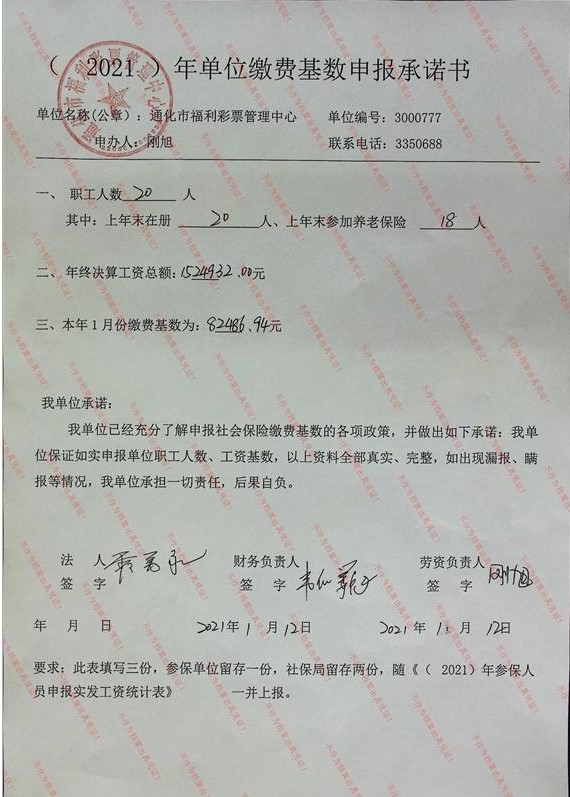 （ 2021 ）年单位缴费基数申报承诺书
单位名称(公章）：通化市福利彩票管理中心 单位编号：3000777
申办人：刚旭 联系电话：3350688
一、 职工人数 20 人
其中：上年末在册 20 人、上年末参加养老保险 18 人
二、年终决算工资总额：1524932.00元
三、本年1月份缴费基数为：82486.94元
我单位承诺：
我单位已经充分了解申报社会保险缴费基数的各项政策，并做出如下承诺：我单
位保证如实申报单位职工人数、工资基数，以上资料全部真实、完整，如出现漏报、瞒
报等情况，我单位承担一切责任，后果自负。
法 人 财务负责人 劳资负责人
签 字 签 字 签 字 刚旭
年 月 日 2021年1月12日 2021年1月12日
要求：此表填写三份，参保单位留存一份，社保局留存两份，随《（ 2021）年参保人
员申报实发工资统计表》 一并上报。
通化市福利彩票管理中心
不作为档案出具凭证！